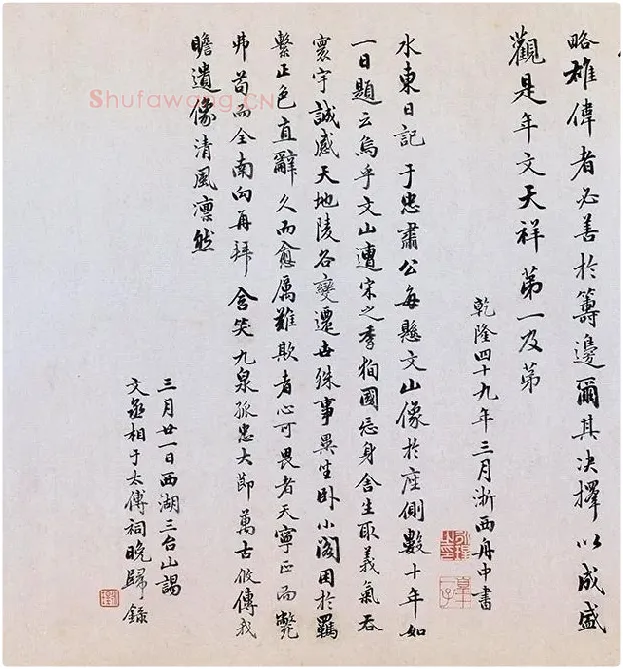 略雄偉者必善於籌邊爾其決擇以成盛
觀是年文天祥第一及第
乾隆四十九年三月浙西舟中書
水東日記于忠肅公每懸文山像於座側數十年如
一日題云烏乎文山遭宋之季狥國忘身舍生取義氣吞
寰宇誠感天地陵谷變遷世殊事異坐卧小閣困於羈
繫正色直辭久而愈厲難欺者心可畏者天寧正而斃
弗苟而全南向再拜含笑九泉孤忠大節萬古攸傳我
瞻遺像清風凜然
三月廿一日西湖三台山謁
文丞相于太傅祠晚歸錄
Shufawang.CN